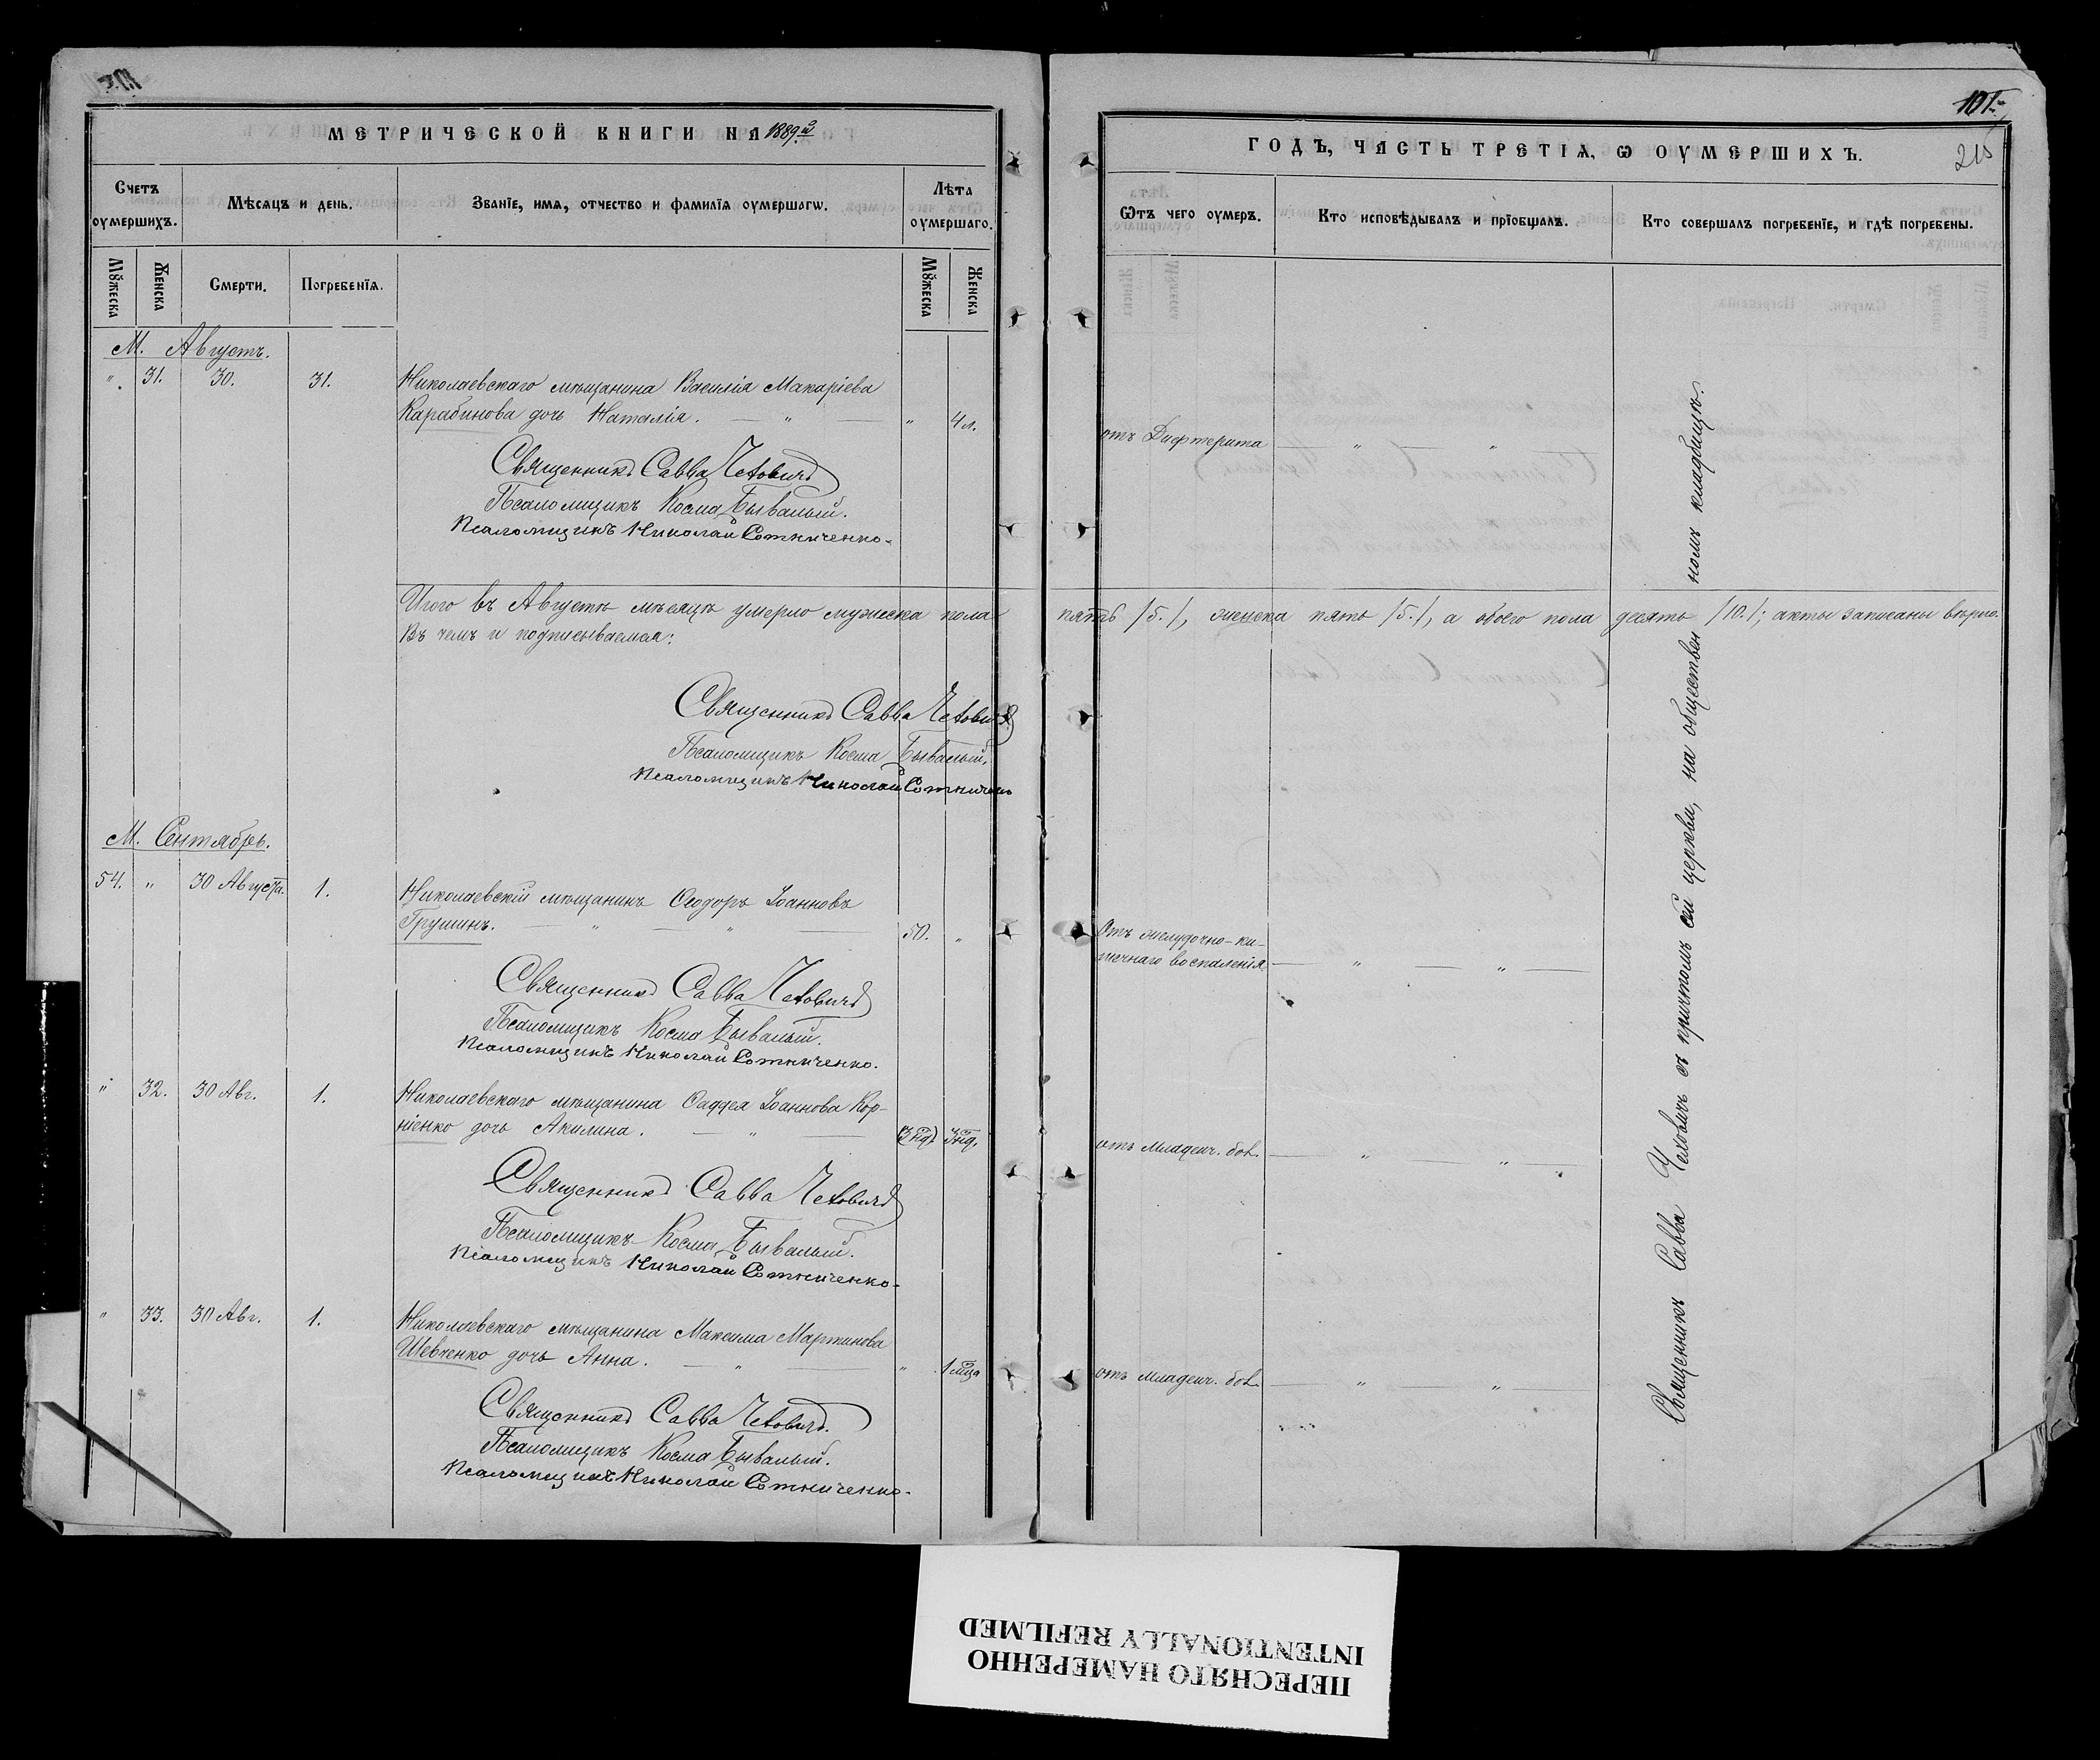 МЕТРИЧЕСКОЙ КНИГИ НА 1889й
Счетъ оумершихъ.
Мѣсяцъ и день.
Званїе, имя, отчество и фамилїя оумершагѡ.
Лѣта оумершаго.
Мꙋжеска
Женска
Смерти.
Погребенїя.
Мꙋжеска
Женска
М. Августъ.
" 31. 30. 31. Николаевскаго мѣщанина Василія Макаріева
Карабинова дочь Наталія. — " — " 4 л.
Священникъ Савва Чеховичъ
Псаломщикъ Косма Бывалый.
Псаломщикъ Николай Сотниченко.
Итого въ Августѣ мѣсяцѣ умерло мужеска пола
Въ чемъ и подписываемся:
Священникъ Савва Чеховичъ
Псаломщикъ Косма Бывалый.
Псаломщикъ Николай Сотничен
М. Сентябрь.
54. " 30 Августа. 1. Николаевскій мѣщанинъ Ѳеодоръ Іоанновъ
Грушинъ. — " — " — 50. "
Священникъ Савва Чеховичъ
Псаломщикъ Косма Бывалый.
Псаломщикъ Николай Сотниченко.
" 32. 30 Авг. 1. Николаевскаго мѣщанина Ѳаддея Іоаннова Кор-
ніенко дочь Акилина. — " — (3 нд) 3 нд.
Священникъ Савва Чеховичъ
Псаломщикъ Косма Бывалый.
Псаломщикъ Николай Сотниченко.
" 33. 30 Авг. 1. Николаевскаго мѣщанина Максима Мартинова
Шевченко дочь Анна. — " — " 1 мца
Священникъ Савва Чеховичъ.
Псаломщикъ Косма Бывалый.
Псаломщикъ Николай Сотниченко.
101
215
ГОДЪ, ЧАСТЬ ТРЕТІѦ, Ѡ ОУМЕРШИХЪ.
Ѿтъ чего оумеръ.
Кто исповѣдывалъ и прїобщалъ.
Кто совершалъ погребенїе, и гдѣ погребены.
отъ Дифтерита — " — " —
пять /5./, женска пять /5./, а обоего пола десять /10./; акты записаны вѣрно.
Отъ желудочно-ки-
шечнаго воспаленія — " — " —
отъ младенч. бол. — " — " —
отъ младенч. бол. — " — " —
Священникъ Савва Чеховичъ съ причтомъ сей церкви, на общественномъ кладбищѣ.
ПЕРЕСНЯТО НАМЕРЕННО
INTENTIONALLY REFILMED